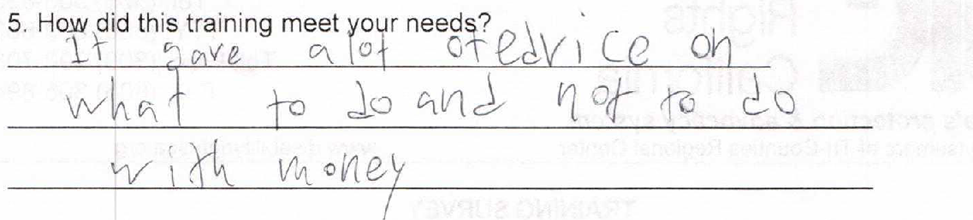 5. How did this training meet your needs?
It gave a lot of edvice on
what to do and not to do
with money